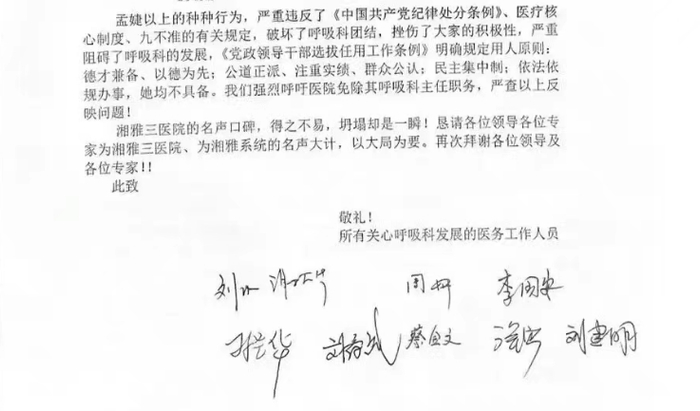 孟婕以上的种种行为，严重违反了《中国共产党纪律处分条例》、医疗核
心制度、九不准的有关规定，破坏了呼吸科团结，挫伤了大家的积极性，严重
阻碍了呼吸科的发展，《党政领导干部选拔任用工作条例》明确规定用人原则：
德才兼备、以德为先；公道正派、注重实绩、群众公认；民主集中制；依法依
规办事，她均不具备。我们强烈呼吁医院免除其呼吸科主任职务，严查以上反
映问题！
湘雅三医院的名声口碑，得之不易，坍塌却是一瞬！恳请各位领导各位专
家为湘雅三医院、为湘雅系统的名声大计，以大局为要。再次拜谢各位领导及
各位专家！！
此致
敬礼！
所有关心呼吸科发展的医务工作人员
李国安
刘建明